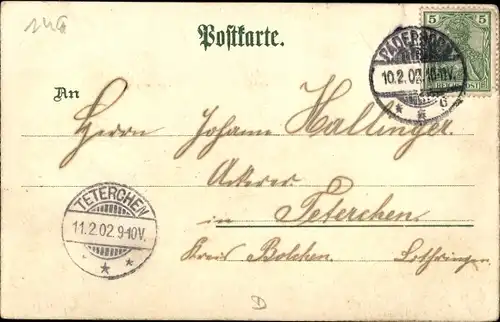 Postkarte.
5
PADERBORN
10.2.02.10-11V.
* * c
REICHSPOST
An
Herrn Johann Hallinger
Ackerer
in Teterchen.
Kreis Bolchen. Lothringen.
TETERCHEN
11.2.02 9-10V.
* * *
D